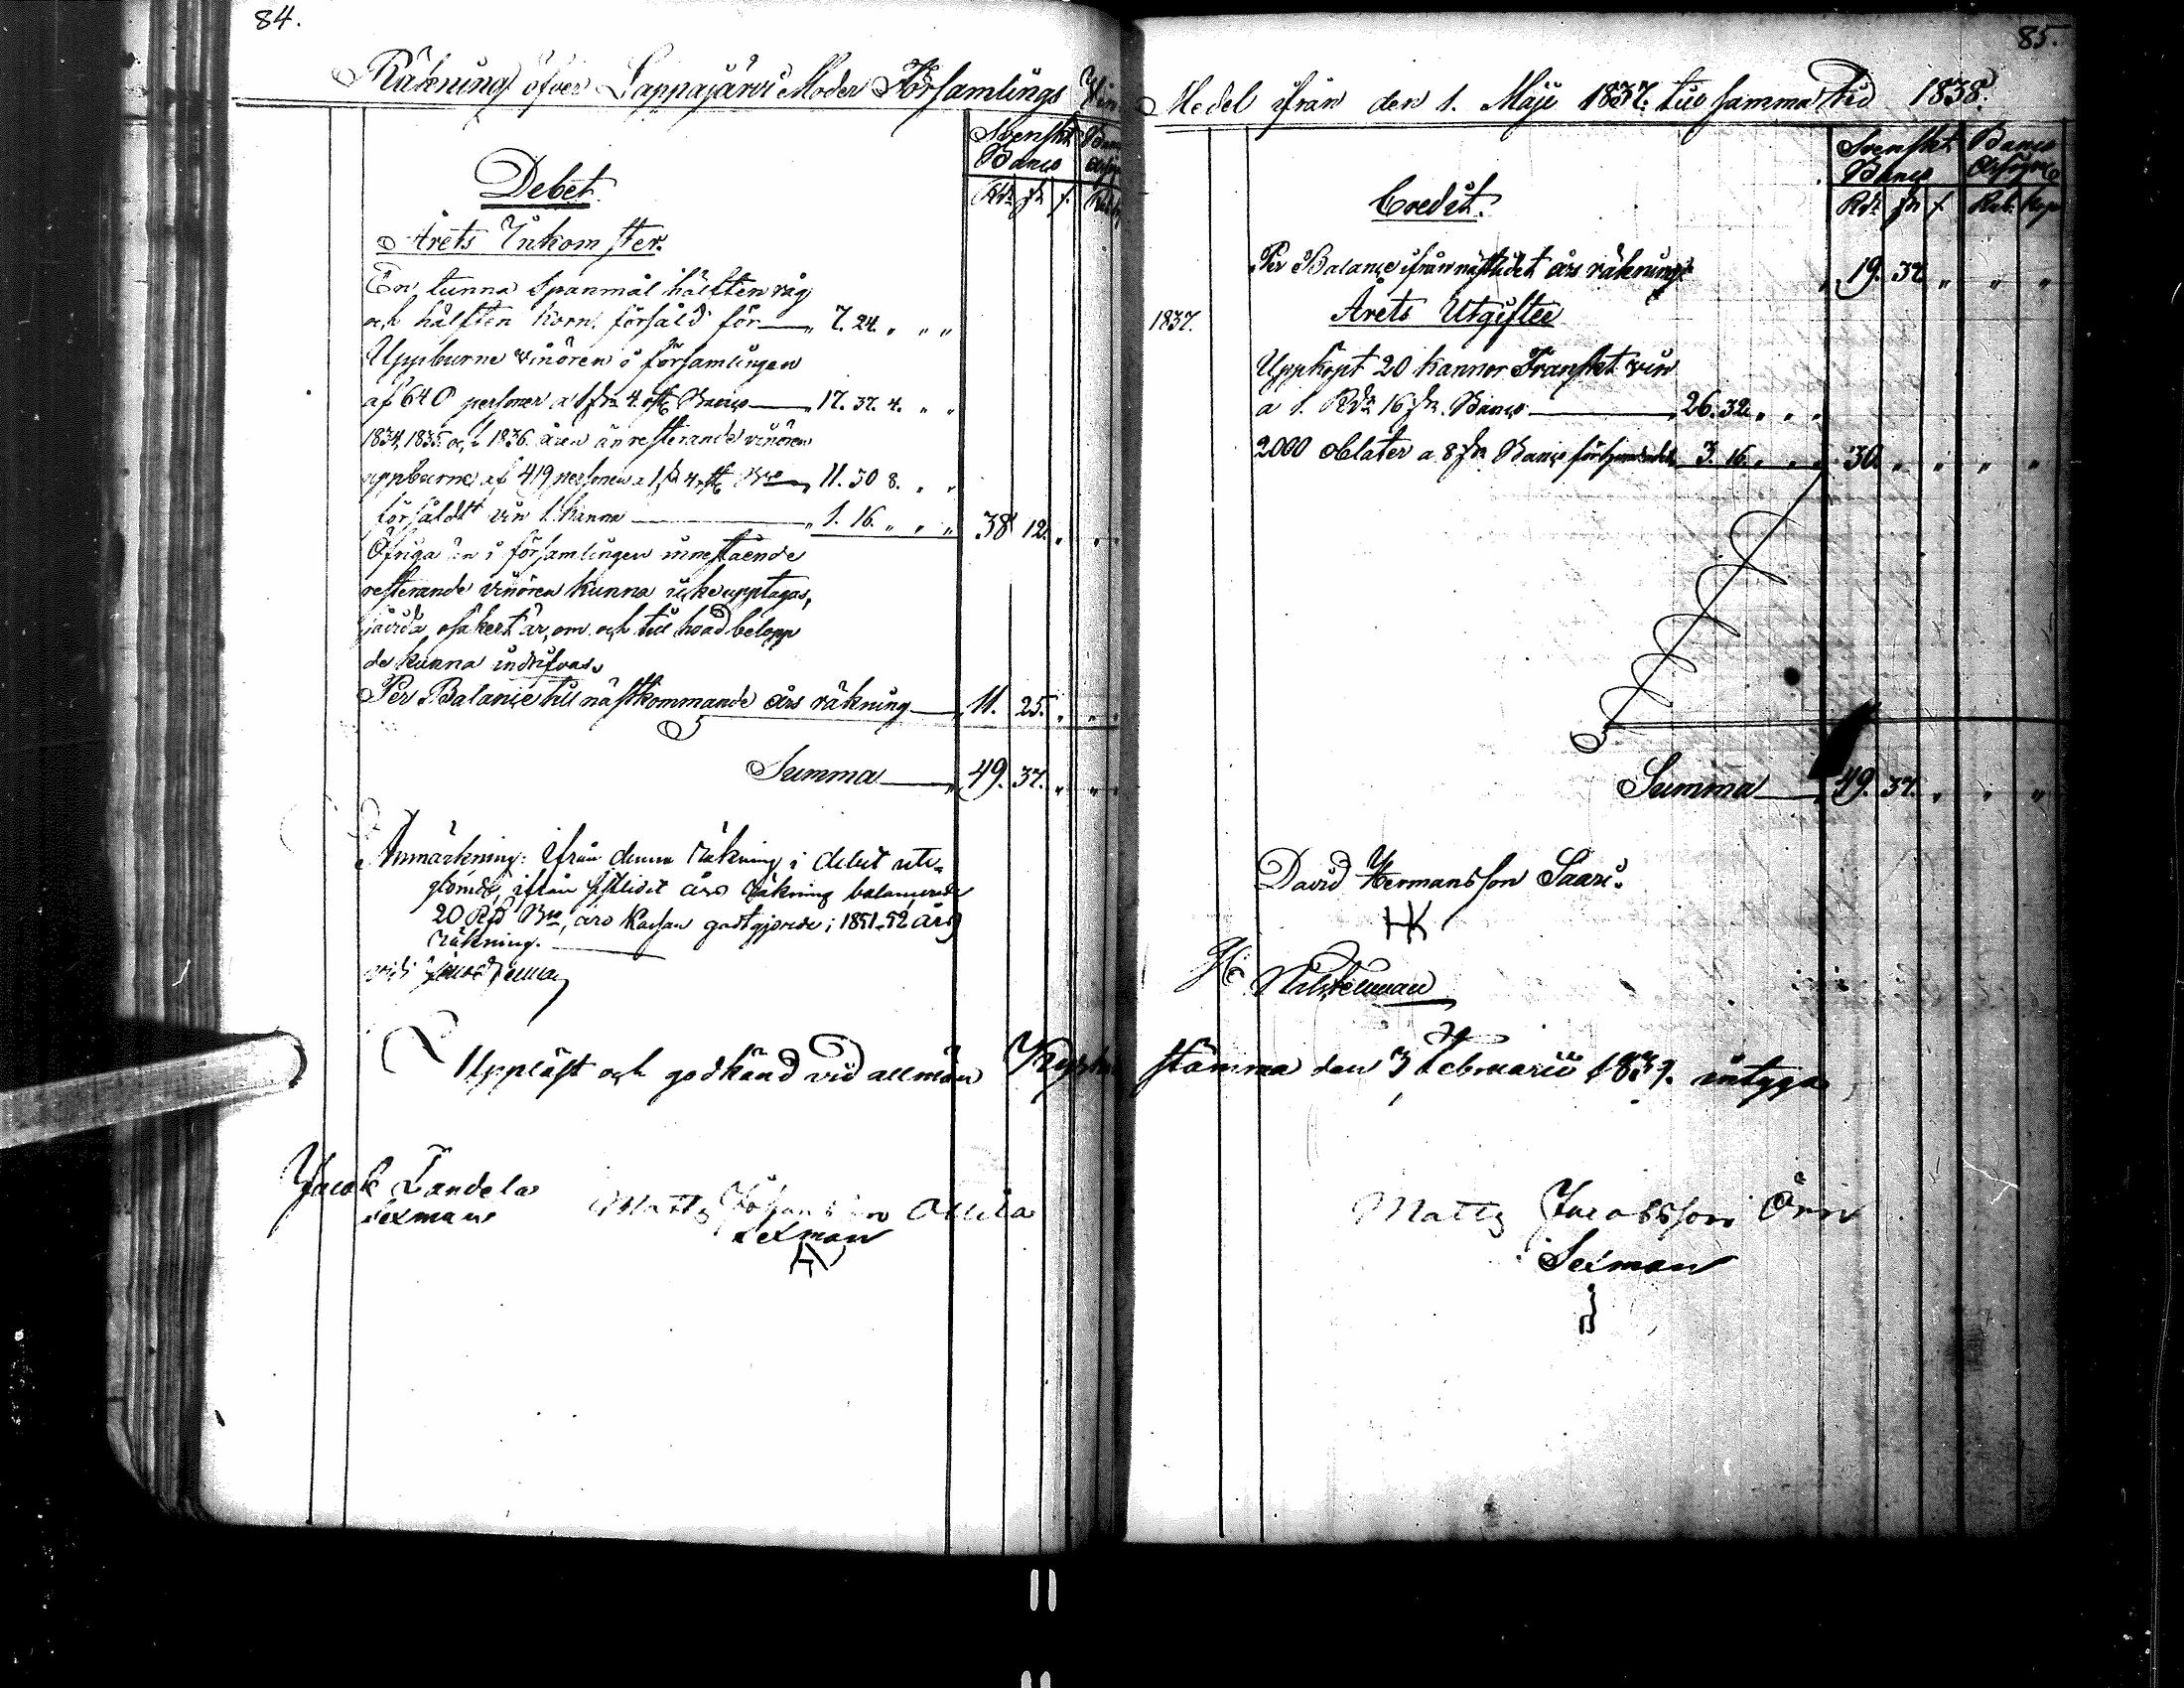 84.
Räkning öfver Lappajärvi Moder Församlings Vin
Svenskt Banco
Rdr sk r.
Debet.
Årets Inkomster.
En tunna Spanmål hälften råg
och hälften korn, försåld för 7. 24. " " "
Uppburne vinören i församlingen
af 640 personer a 1 sk 4 rst Banco 17. 37. 4. " "
1834, 1835 och 1836 åren än resterande vinören
uppburne af 419 personer a 1 sk 4 rst Bco 11. 30 8. " "
försåldt vin 1. kanna " 1. 16. " " " 38 12. " "
Öfriga än i församlingen innestående
resterande vinören kunna icke upptagas,
såvida osäkert är, om och till hvad belopp
de kunna indrifvas.
Per Balance till nästkommande års räkning 11. 25. " "
Summa 49. 37. " "
Anmärkning: Ifrån denna räkning i debet ute-
glömde, ifrån sistlidit års räkning balancerade
20 Rd Bco, äro Kassan godtgjorde i 1851-52 års
räkning.
vidi
Uppläst och godkänd vid allmän Kyrko
Jacob Landela
Sexman
Matts Johansson Ollila
Sexman
85.
Medel ifrån den 1. Maji 1837. till samma tid 1838.
Svenskt Banco
Banco Assigne
Rdr sk r. Rub. Kop
Credit.
Per Balance ifrån nästlidet års räkning 19. 37 " " "
1837.
Årets Utgifter
Uppköpt 20 kannor Franskt vin
a 1. Rdr 16 sk. Banco 26. 32. " " "
2000 oblater a 8 sk Banco för hundrade 3. 16. " " " 30. " " " "
Summa 49. 37. " " "
David Hermansson Saari.
HK
stämma den 3 Februarii 1839. intyga
Matts Jacobsson Örn
Sexman